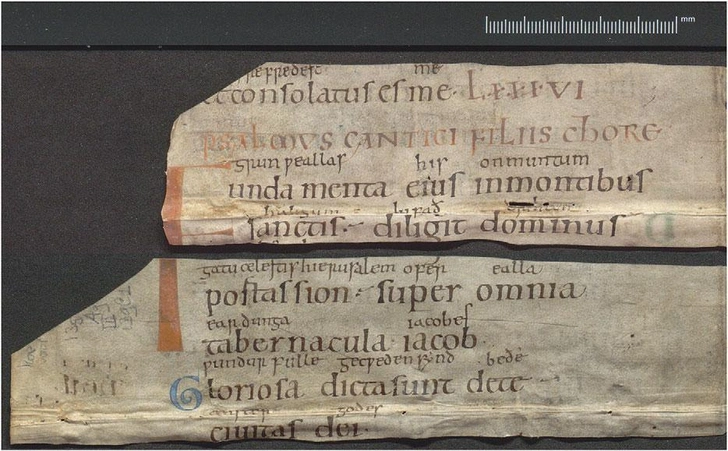 mm
me
et consolatus es me · LXXXVI
psalmus cantici filiis chore
grunƿeallas his onmuntum
Fundamenta eius inmontibus
haligum lufað
sanctis · diligit dominus
gatu celestis hierusalem ofer ealla
portas sion · super omnia
eardunga iacobes
tabernacula iacob
ƿundurfulle gecƿeden synd bede
Gloriosa dicta sunt dete
godes
ciuitas dei ·